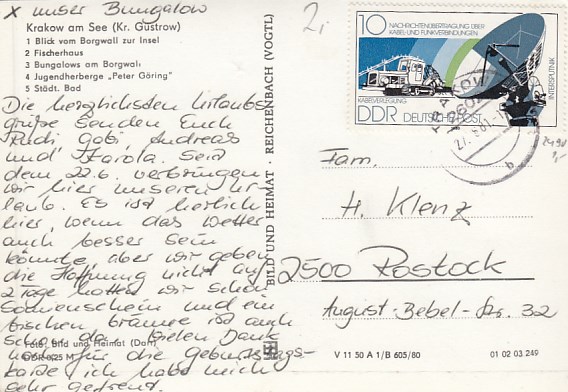 x unser Bungalow
Krakow am See (Kr. Güstrow)
1 Blick vom Borgwall zur Insel
2 Fischerhaus
3 Bungalows am Borgwall
4 Jugendherberge „Peter Göring“
5 Städt. Bad
Die herzlichsten Urlaubs-
grüße senden Euch
Rudi, Gabi, Andreas
und Karola. Seid
dem 22.6. verbringen
wir hier unseren Ur-
laub. Es ist herrlich
hier, wenn das Wetter
auch besser sein
könnte, aber wir geben
die Hoffnung nicht auf
2 Tage hatten wir schon
Sonnenschein und ein
bischen bräune ist auch
schon da. Vielen Dank
noch für die Geburtstags-
karte ich habe mich
sehr gefreut.
Foto: Bild und Heimat (Dorr)
DDR 0,25 M
BILD UND HEIMAT · REICHENBACH (VOGTL)
10 NACHRICHTENÜBERTRAGUNG ÜBER
KABEL- UND FUNKVERBINDUNGEN
INTERSPUTNIK
KABELVERLEGUNG
DDR DEUTSCHE POST
Fam.
H. Klenz
2500 Rostock
August-Bebel-Str. 32
V 11 50 A 1/B 605/80
01 02 03 249